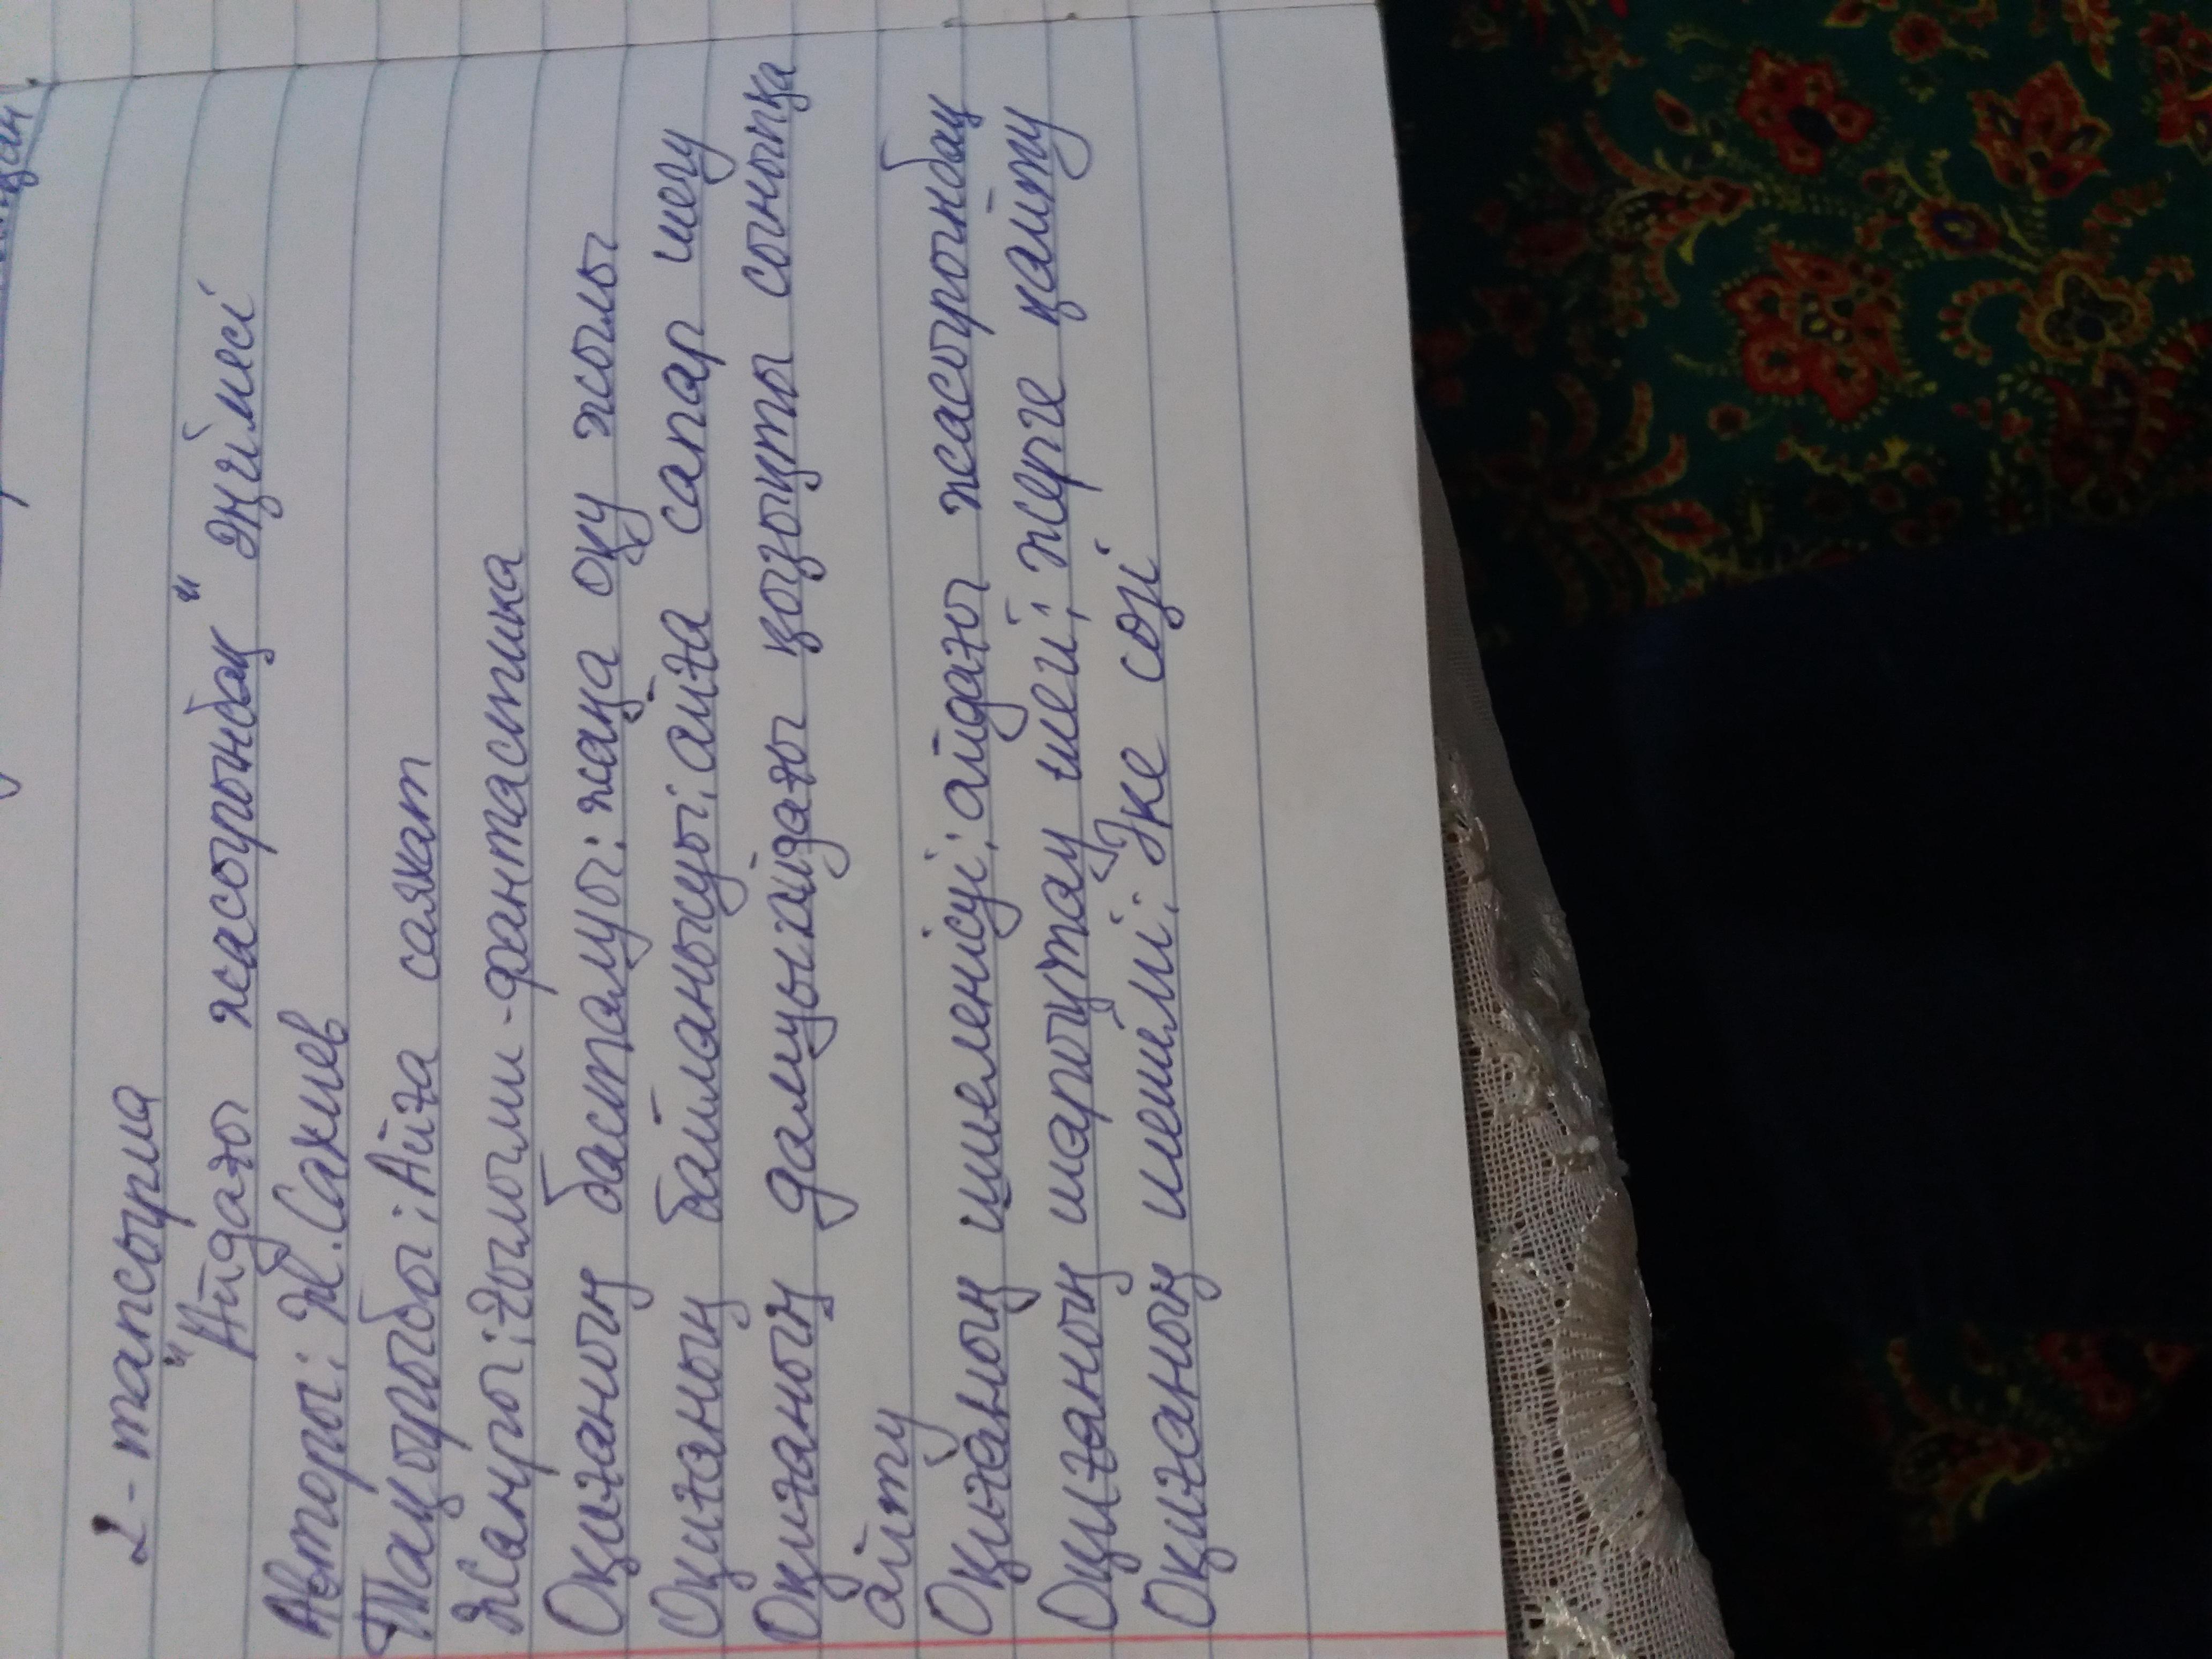 2-тапсырма
"Айдағы жасырынбақ" әңгімесі
Авторы: Ж. Сахиев
Тақырыбы: Айға саяхат
Жанры: ғылыми-фантастика
Оқиғаның басталуы: жаңа оқу жылы
Оқиғаның байланысуы: айға сапар шегу
Оқиғаның дамуы: айдағы қозғалқты сыныпқа
айту
Оқиғаның шиеленісуі: айдағы жасырынбақ
Оқиғаның шарықтау шегі: жерге қайту
Оқиғаның шешімі: Әке сөзі